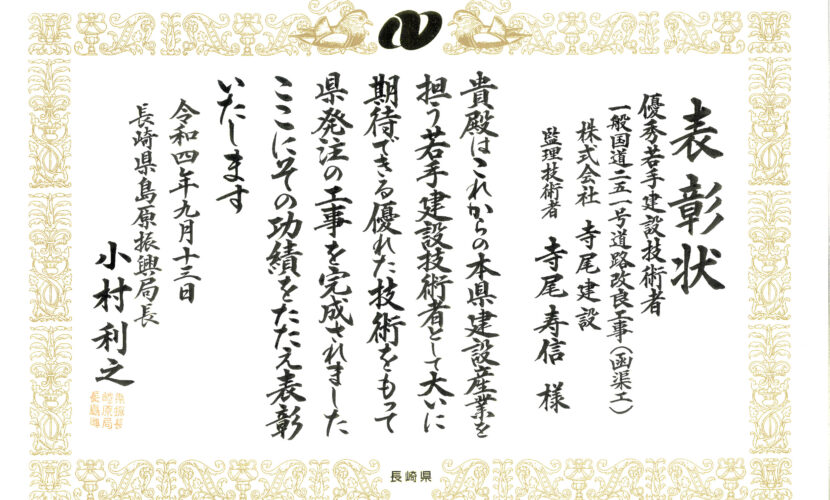 表彰状
優秀若手建設技術者
一般国道二五一号道路改良工事（函渠工）
株式会社 寺尾建設
監理技術者 寺尾寿信 様
貴殿はこれからの本県建設産業を
担う若手建設技術者として大いに
期待できる優れた技術をもって
県発注の工事を完成されました
ここにその功績をたたえ表彰
いたします
令和四年九月十三日
長崎県島原振興局長
小村利之
長崎県